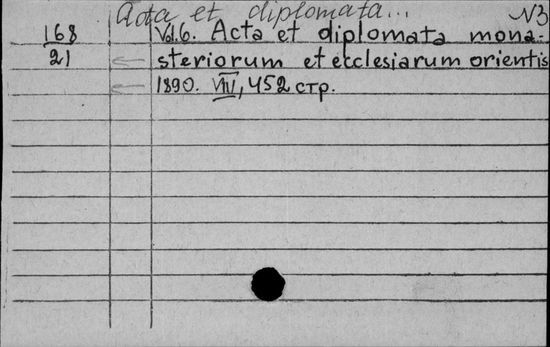 Acta et diplomata... N3
168 Vol.6. Acta et diplomata mona-
21 steriorum et ecclesiarum orientis
1890. VIII, 452 стр.